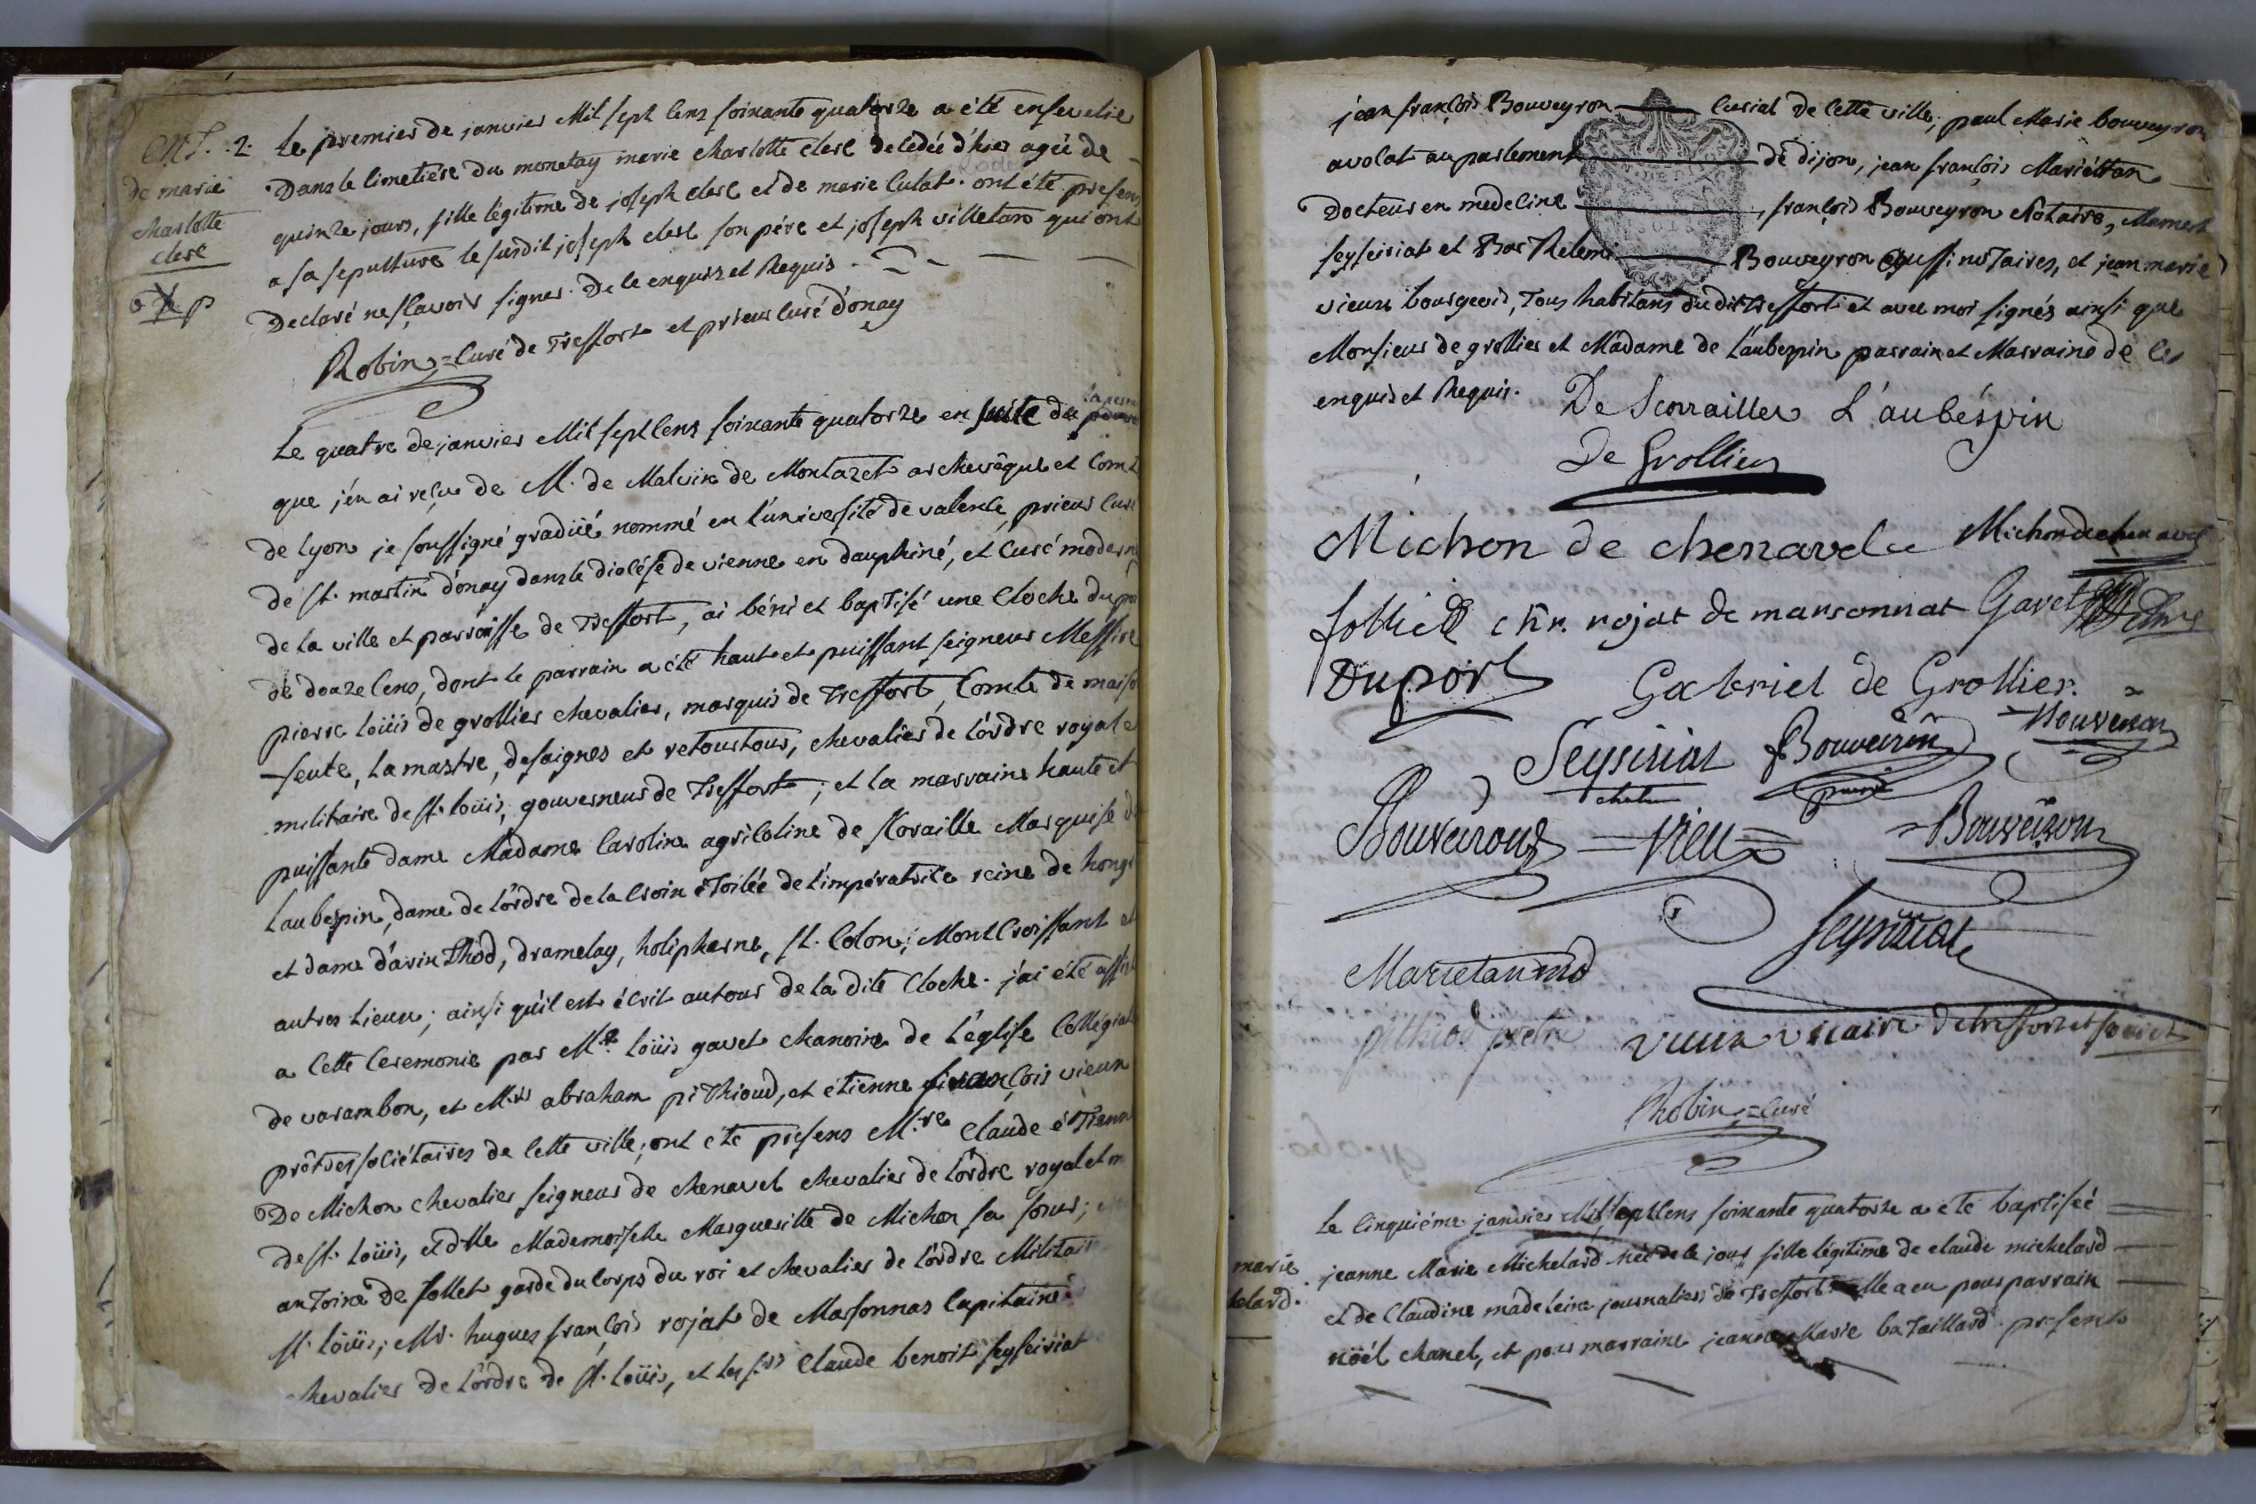 Ent. 2.
de marie
charlotte
clerc
Le premier de janvier Mil sept cens soixante quatorze a été ensevelie
Dans le cimetière du monetay marie charlotte clerc decedée d'hier agée de
quinze jours, fille légitime de joseph clerc et de marie cutat. ont été presens
a sa sepulture le susdit joseph clerc son père et joseph villetan qui ont
Declaré ne sçavoir signer. De ce enquis et Requis.
Robin = Curé de Treffort et prieur curé d'onay
Le quatre de janvier Mil sept cens soixante quatorze en suite de
que j'en ai reçue de M. de Malvin de Montazet archevêque et Comt
de Lyon je soussigné gradüé nommé en l'université de valence, prieur curé
de St. martin d'onay dans le diocése de vienne en dauphiné, et Curé moderne
de la ville et parroisse de Treffort, ai béni et baptisé une Cloche du poi
de douze cens, dont le parrain a été haut et puissant seigneur Messire
pierre loüis de grollier chevalier, marquis de Treffort, Comte de maiso
-seule, La mastre, desaignes et retourtour, chevalier de l'ordre royal e
militaire de St. loüis, gouverneur de Treffort; et la marraine haute et
puissante dame Madame Caroline agricoline de Scoraille Marquise d
Laubespin, dame de l'ordre de la Croix étoilée de L'impératrice reine de hong
et dame d'arinthod, dramelay, holipherne, St. Colon, Montcroissant et
autres lieux; ainsi qu'il est écrit autour de la dite Cloche. j'ai été assist
a cette Ceremonie par Mre. loüis gavet chanoine de L'église Collégiale
de varambon, et Mrs. abraham pithioud, et etienne françois vieux
prêtres sociétaires de cette ville; ont été presens Mre. Claude étienne
De Michon chevalier seigneur de chenavel chevalier de l'ordre royal et m
de St. loüis, et dlle Mademoiselle Marguerite de Michon sa sœur;
antoine de follet garde du corps du roi et chevalier de l'ordre Militair
St. loüis; Mr. hugues françois rojat de Marsonnas Capitaine
chevalier de l'ordre de St. loüis, et les srs Claude benoit seyseiriat
jean françois Bouveyron curial de cette ville, paul Marie bouveyron
avocat au parlement de dijon, jean françois Mariéttan
Docteur en medecine, françois Bouveyron Notaire, Mamert
seyseiriat et Barthelemi Bouveyron aussi notaires, et jean marie
vieux bourgeois, Tous habitans du dit Treffort et avec moi signés ainsi que
Monsieur de grollier et Madame de Laubespin parrain et Marraine de ce
enquis et Requis.
De Scorrailles L'aubéspin
De Grollier
Michon de chenavel Michon de chenavel
follict chr. rojat de marsonnat Gavet
Duport Gabriel de Grollier.
Seyseiriat Bouveiron Bouveiron
Bouveiron = Vieux = Bouveiron
Seyseiriat
Marietan md
pithiod pretre vieux vicaire de treffort et societ.
Robin = curé
marie
helard.
Le Cinquiéme janvier Mil sept cens soixante quatorze a été baptisée
jeanne Marie Michelard née de ce jour fille légitime de claude michelard
et de Claudine madeleine journalier de Treffort elle a eu pour parrain
noël chanel, et pour marraine jeanne Marie bataillard. presents